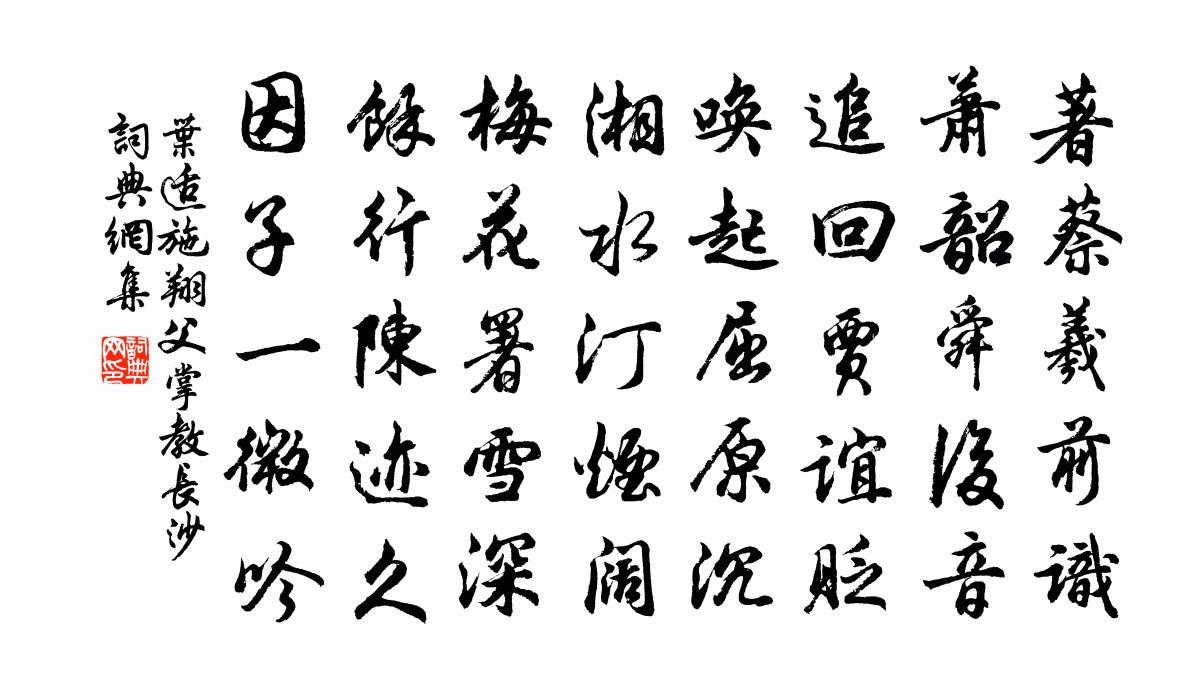 著蔡羲前識
萧韶舜後音
追回賈誼貶
唤起屈原沉
湘水汀煙阔
梅花署雪深
餘行陳迹久
因子一微吟
葉适施翔父掌教長沙
詞典網集
詞典网印